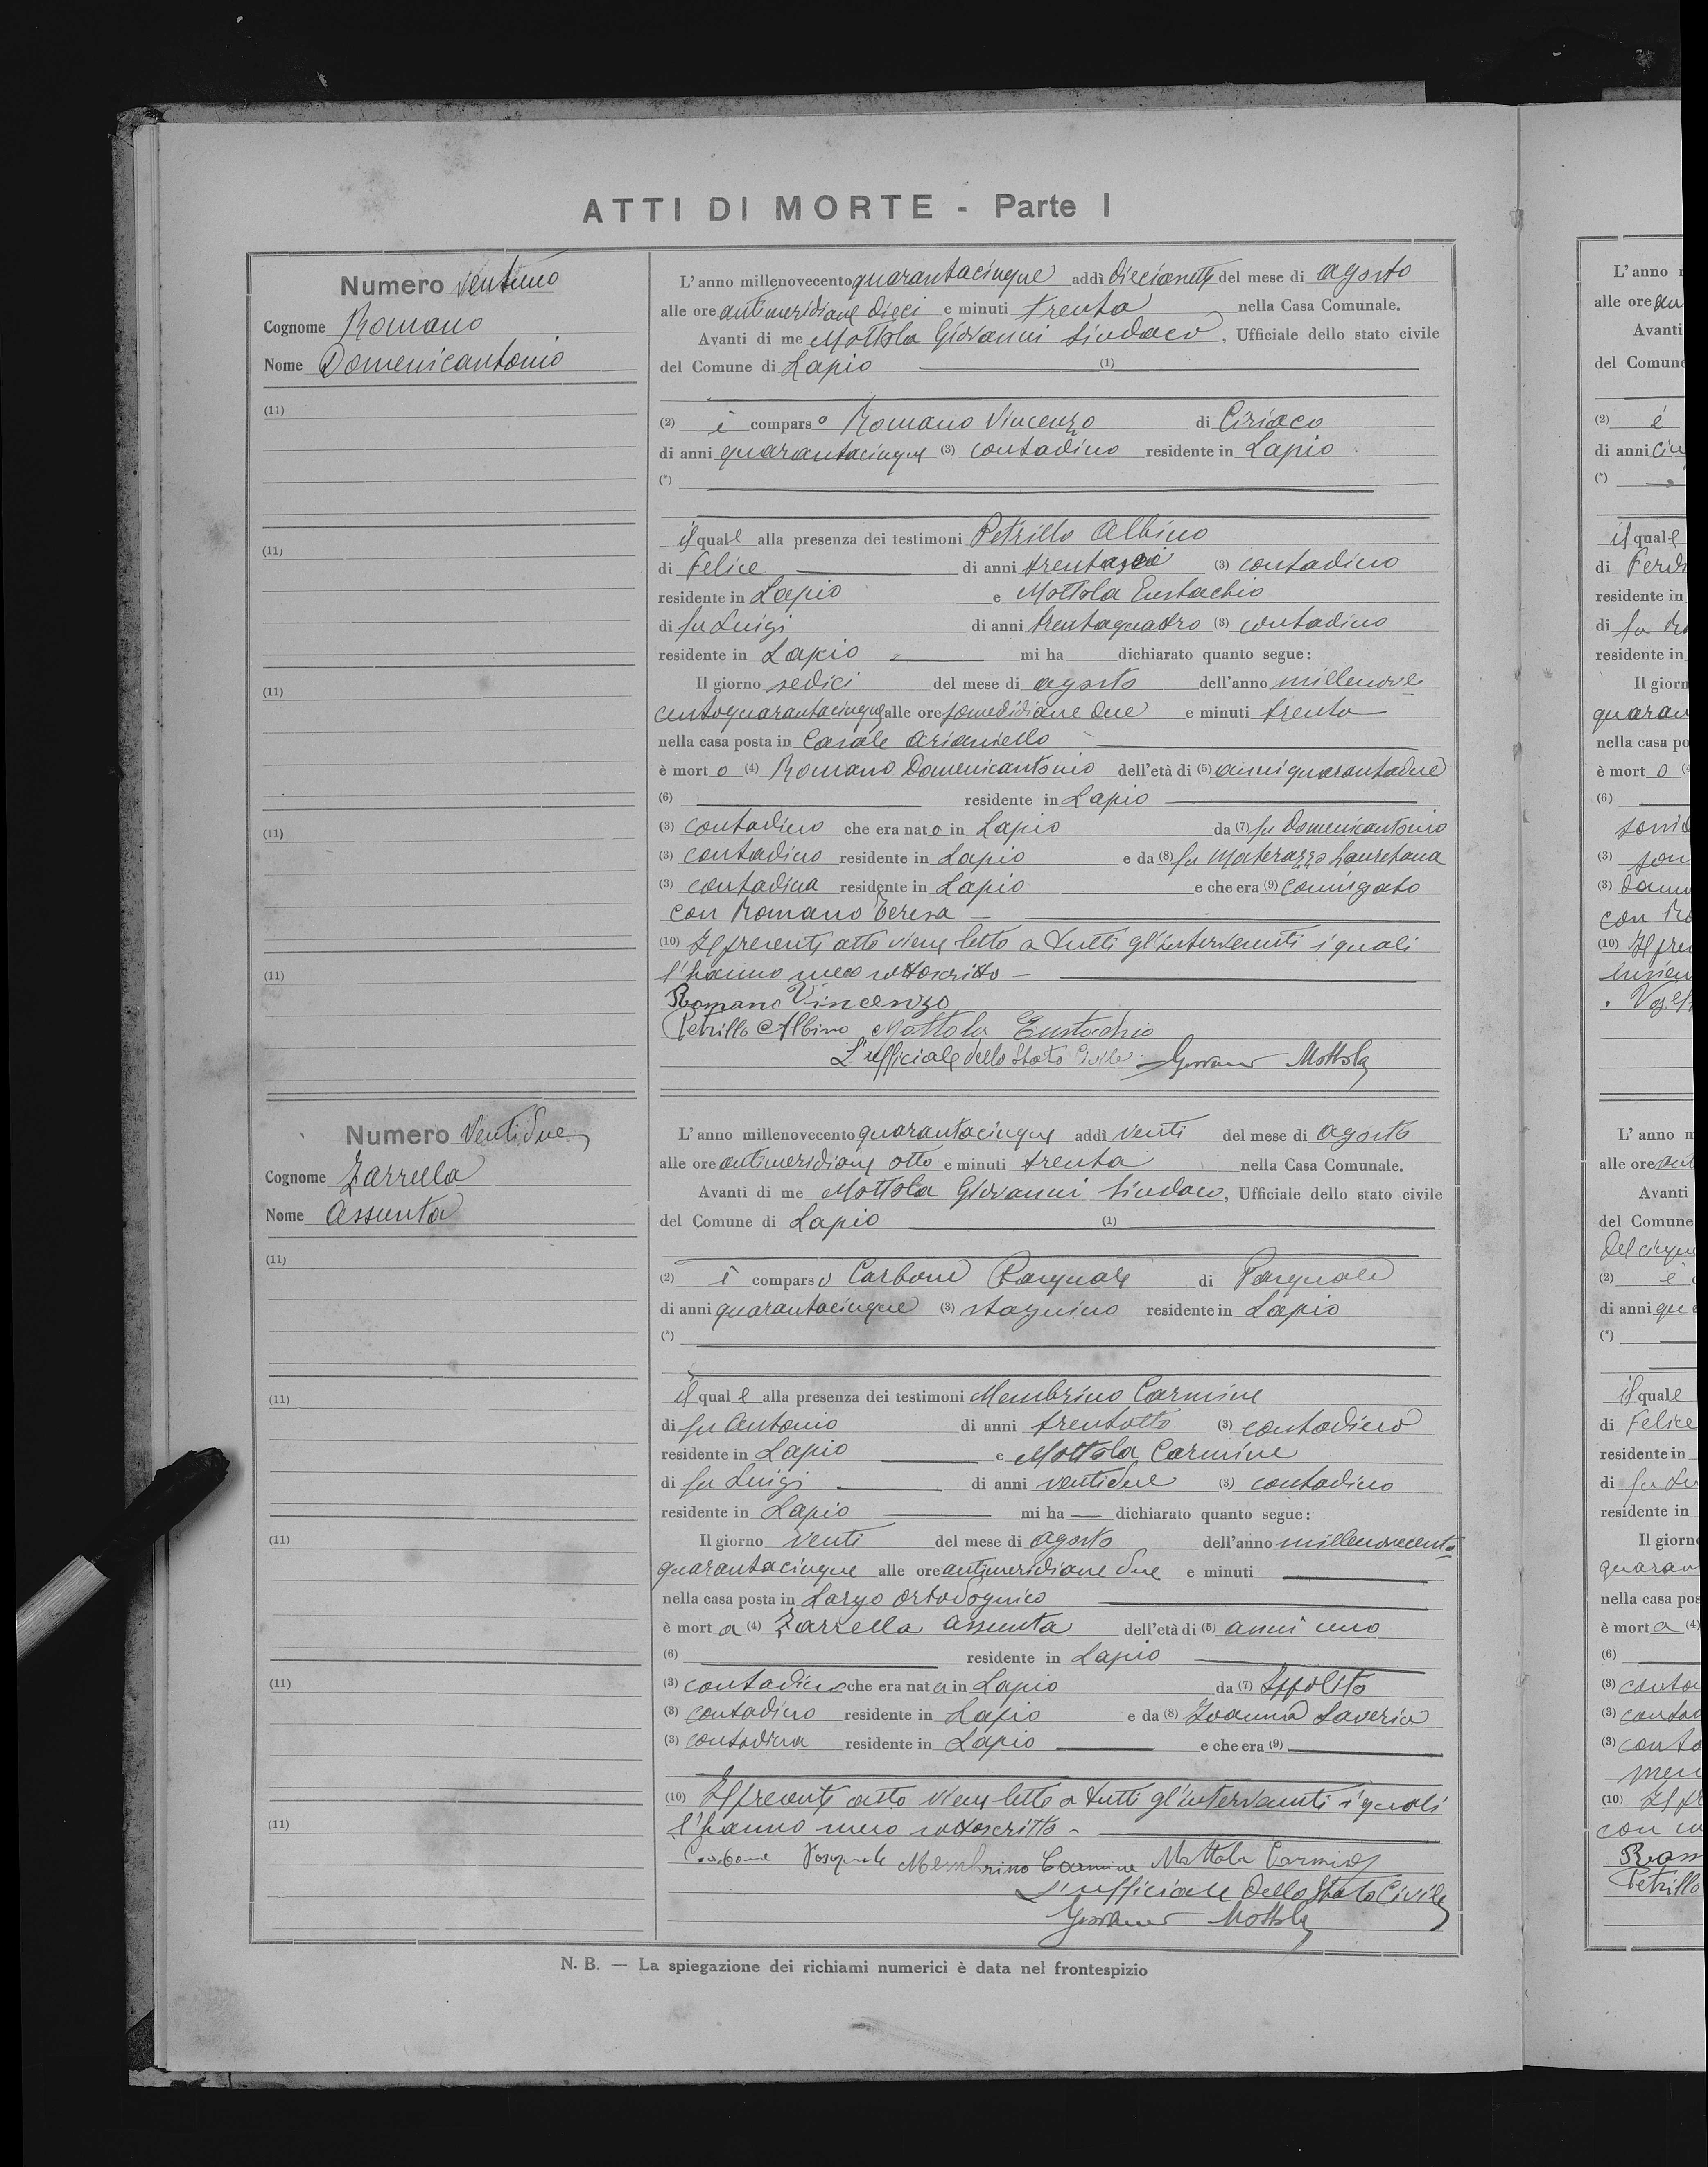 ATTI DI MORTE - Parte I
Numero ventuno
Cognome Romano
Nome Domenicantonio
(11)
(11)
(11)
(11)
(11)
L'anno millenovecento quarantacinque addì diecisette del mese di agosto
alle ore antimeridiane dieci e minuti trenta nella Casa Comunale.
Avanti di me Mottola Giovanni Sindaco, Ufficiale dello stato civile
del Comune di Lapio (1)
(2) è comparso Romano Vincenzo di Ciriaco
di anni quarantacinque (3) contadino residente in Lapio
(*)
il quale alla presenza dei testimoni Petrillo Albino
di Felice di anni trentasei (3) contadino
residente in Lapio e Mottola Eustachio
di fu Luigi di anni trentaquattro (3) contadino
residente in Lapio mi ha dichiarato quanto segue:
Il giorno sedici del mese di agosto dell'anno millenove
centoquarantacinque alle ore pomedidiane due e minuti trenta
nella casa posta in Casale Arianiello
è morto (4) Romano Domenicantonio dell'età di (5) anni quarantadue
(6) residente in Lapio
(3) contadino che era nato in Lapio da (7) fu Domenicantonio
(3) contadino residente in Lapio e da (8) fu Materazzo Lauretana
(3) contadina residente in Lapio e che era (9) coniugato
con Romano Teresa
(10) Il presente atto viene letto a tutti gl'intervenuti i quali
l'hanno meco sottoscritto
Romano Vincenzo
Petrillo Albino Mottola Eustachio
L'ufficiale dello Stato Civile Giovanni Mottola
Numero Ventidue
Cognome Zarrella
Nome Assunta
(11)
(11)
(11)
(11)
(11)
L'anno millenovecento quarantacinque addì venti del mese di agosto
alle ore antimeridiane otto e minuti trenta nella Casa Comunale.
Avanti di me Mottola Giovanni Sindaco, Ufficiale dello stato civile
del Comune di Lapio (1)
(2) è comparso Carbone Pasquale di Pasquale
di anni quarantacinque (3) stagnino residente in Lapio
(*)
il quale alla presenza dei testimoni Membrino Carmine
di fu Antonio di anni trentotto (3) contadino
residente in Lapio e Mottola Carmine
di fu Luigi di anni ventidue (3) contadino
residente in Lapio mi ha dichiarato quanto segue:
Il giorno venti del mese di agosto dell'anno millenovecento
quarantacinque alle ore antimeridiane due e minuti
nella casa posta in Largo
è morta (4) Zarrella Assunta dell'età di (5) anni uno
(6) residente in Lapio
(3) contadina che era nata in Lapio da (7) Ippolito
(3) contadino residente in Lapio e da (8) Ioanna Saveria
(3) contadina residente in Lapio e che era (9)
(10) Il presente atto viene letto a tutti gl'intervenuti i quali
l'hanno meco sottoscritto
Carbone Pasquale Membrino Carmine Mottola Carmine
L'ufficiale dello Stato Civile
Giovanni Mottola
N. B. — La spiegazione dei richiami numerici è data nel frontespizio
L'anno
alle ore
Avanti
del Comune
(2) è
di anni
(*)
il quale
di
residente in
di fu
residente in
Il giorn
quaran
nella casa po
è mort o
(6)
(3)
(3)
con
(10) Il pre
L'anno
alle ore
Avanti
del Comune
(2) è
di anni
(*)
il quale
di Felice
residente in
di fu
residente in
Il giorn
quaran
nella casa pos
è mort a (4)
(6)
(3) conta
(3) contad
(3) conta
(10) Il pr
con
Rom
Petrillo